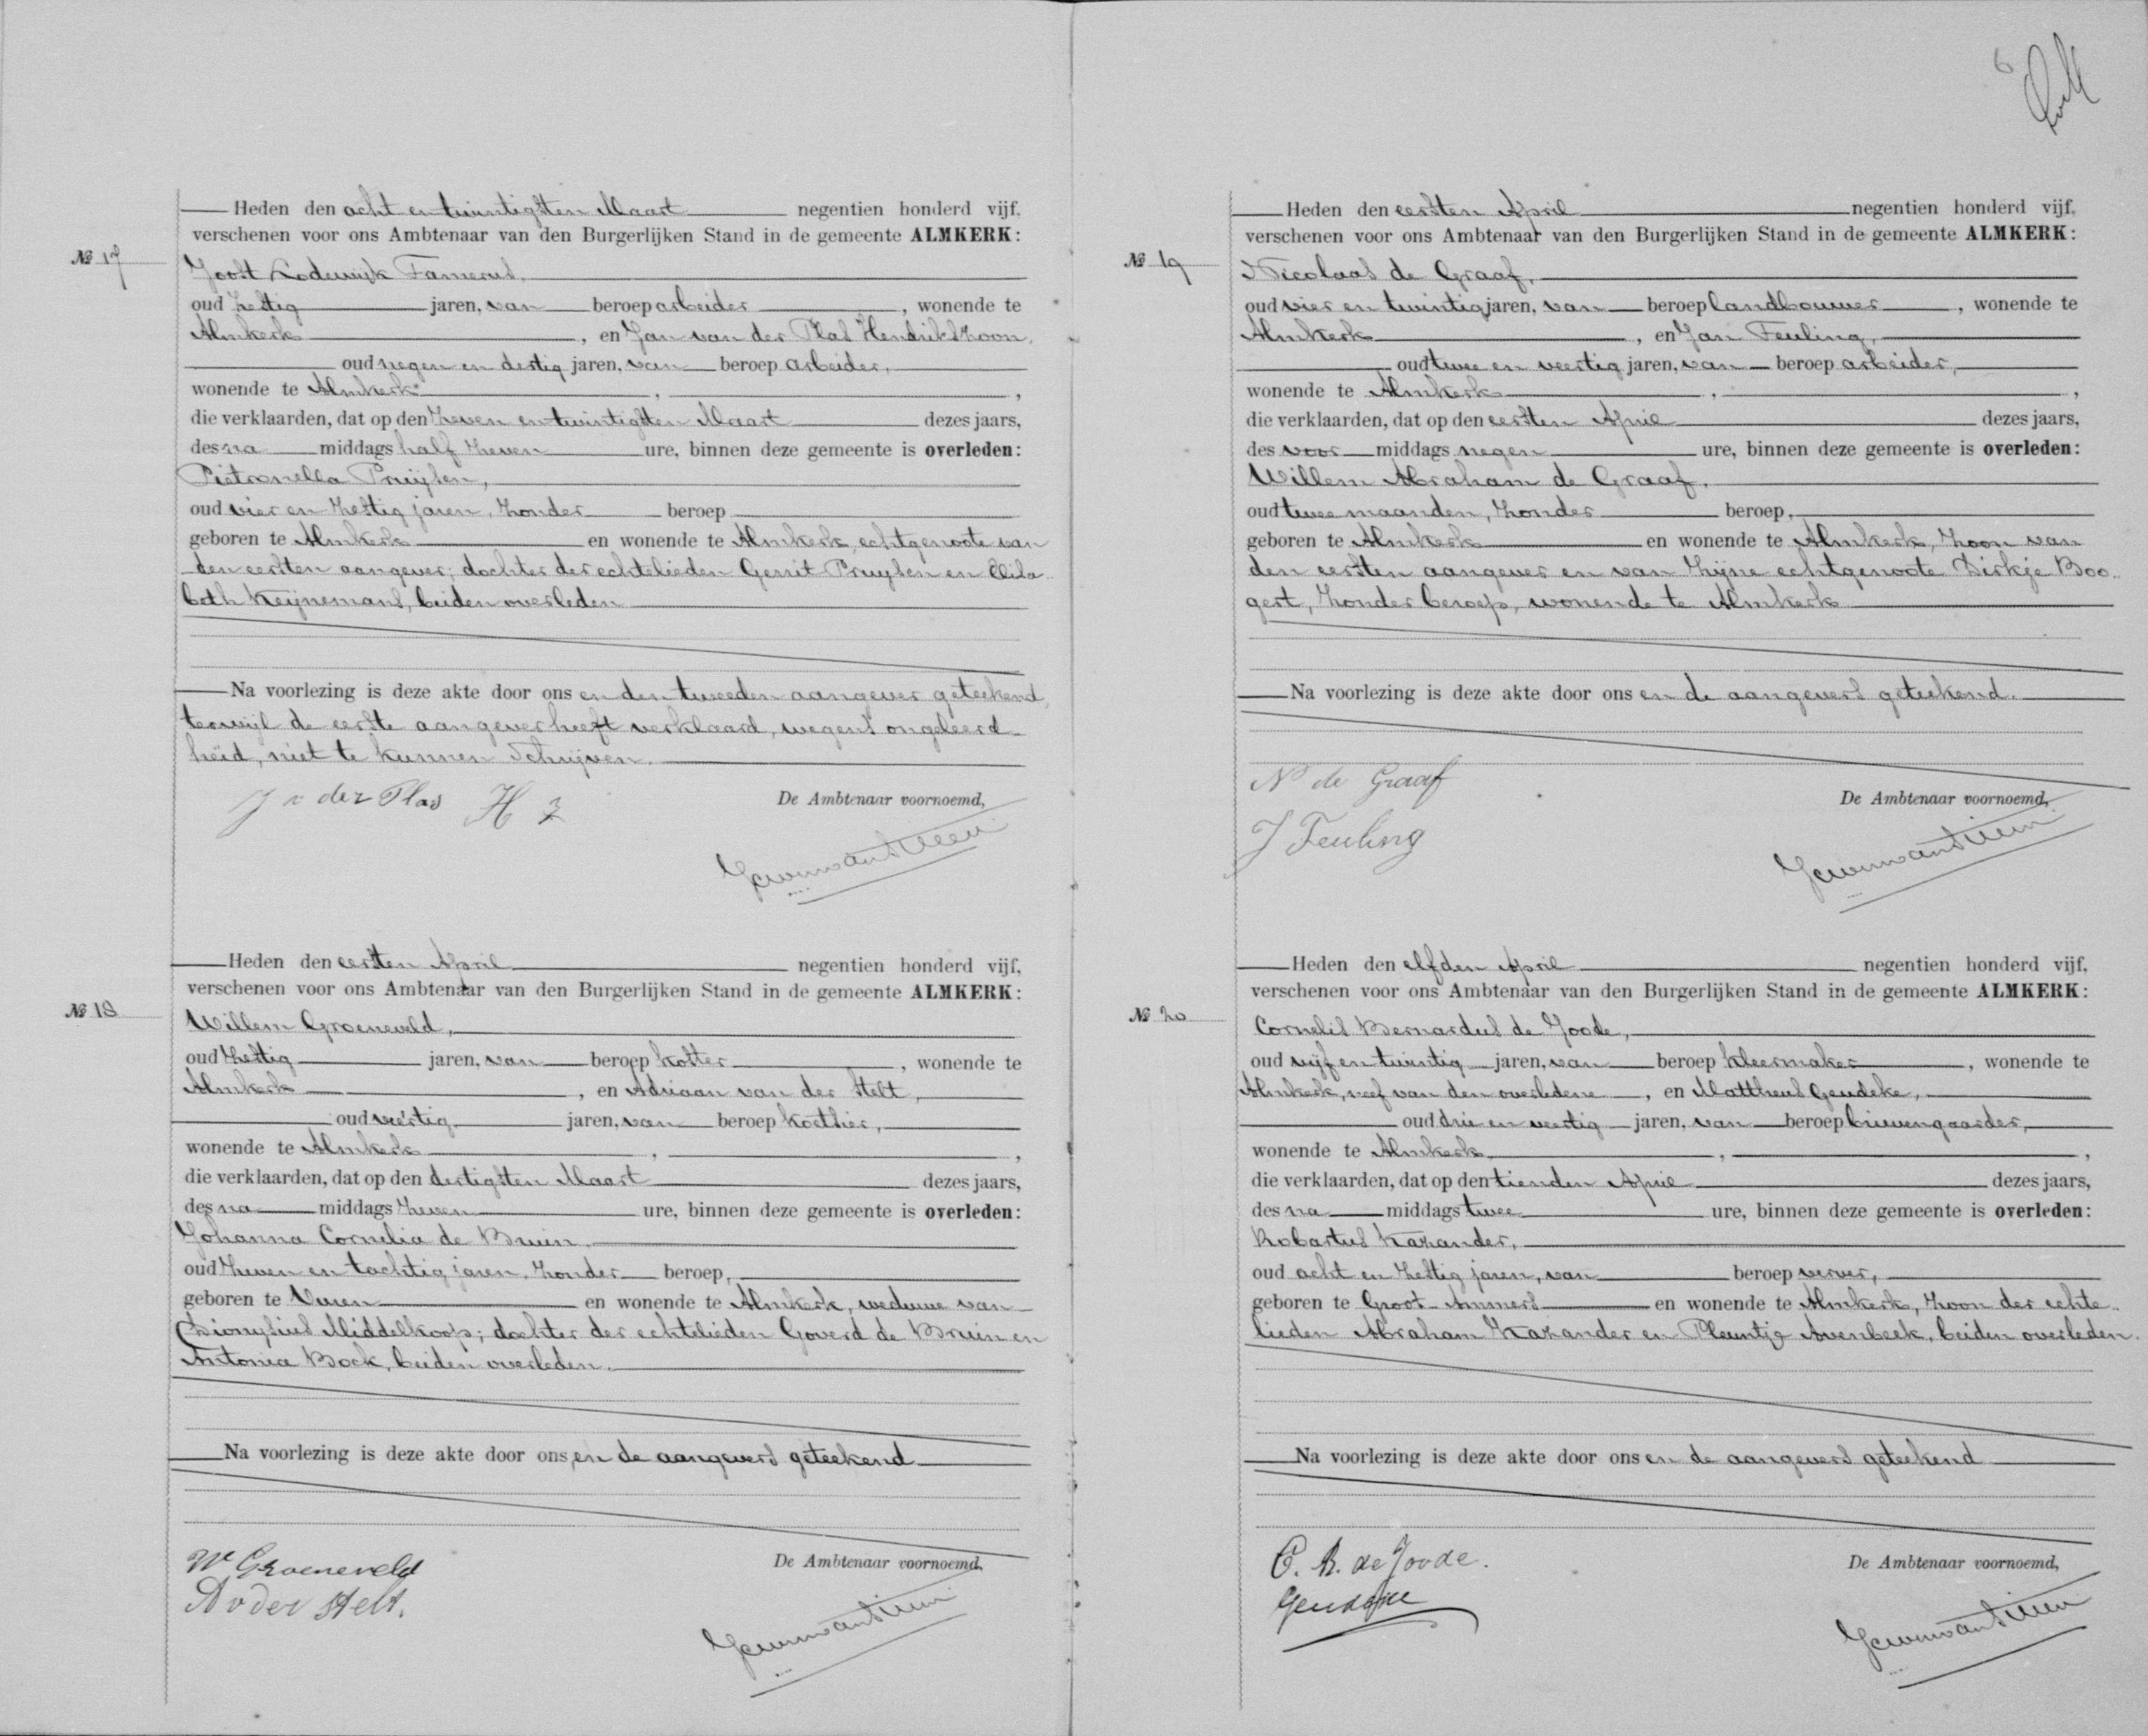 6
№ 17
Heden den acht en twintigsten Maart negentien honderd vijf,
verschenen voor ons Ambtenaar van den Burgerlijken Stand in de gemeente ALMKERK:
Joost Lodewijk Famerus,
oud zestig jaren, van beroep arbeider, wonende te
Almkerk, en Jan van der Plas Hendrikszoon,
oud negen en dertig jaren, van beroep arbeider,
wonende te Almkerk, ,
die verklaarden, dat op den zeven en twintigsten Maart dezes jaars,
des na middags half zeven ure, binnen deze gemeente is overleden:
Pietronella Pruijsen,
oud vier en zestig jaren, zonder beroep
geboren te Almkerk en wonende te Almkerk, echtgenoote van
den eersten aangever; dochter der echtelieden Gerrit Pruysen en Elisa-
beth Keijnemans, beiden overleden
Na voorlezing is deze akte door ons en den tweeden aangever geteekend,
terwijl de eerste aangever heeft verklaard, wegens ongeleerd-
heid, niet te kunnen schrijven.
J v der Plas H z
De Ambtenaar voornoemd,
№ 18
Heden den eersten April negentien honderd vijf,
verschenen voor ons Ambtenaar van den Burgerlijken Stand in de gemeente ALMKERK:
Willem Groeneveld,
oud zestig jaren, van beroep koster, wonende te
Almkerk, en Adriaan van der Stelt,
oud veertig jaren, van beroep koethier,
wonende te Almkerk, ,
die verklaarden, dat op den dertigsten Maart dezes jaars,
des na middags zeven ure, binnen deze gemeente is overleden:
Johanna Cornelia de Bruin,
oud zeven en tachtig jaren, zonder beroep,
geboren te Vuren en wonende te Almkerk, weduwe van
Dionysius Middelkoop; dochter der echtelieden Goverd de Bruin en
Antonia Bock, beiden overleden.
Na voorlezing is deze akte door ons en de aangevers geteekend
W Groeneveld
A v der Stelt.
De Ambtenaar voornoemd,
№ 19
Heden den eersten April negentien honderd vijf,
verschenen voor ons Ambtenaar van den Burgerlijken Stand in de gemeente ALMKERK:
Nicolaas de Graaf,
oud vier en twintig jaren, van beroep landbouwer, wonende te
Almkerk, en Jan Feuling,
oud twee en veertig jaren, van beroep arbeider,
wonende te Almkerk, ,
die verklaarden, dat op den eersten April dezes jaars,
des voor middags negen ure, binnen deze gemeente is overleden:
Willem Abraham de Graaf,
oud twee maanden, zonder beroep,
geboren te Almkerk en wonende te Almkerk, zoon van
den eersten aangever en van zijne echtgenoote Dirkje Boo-
gert, zonder beroep, wonende te Almkerk
Na voorlezing is deze akte door ons en de aangevers geteekend.
Ns de Graaf
J Feuling
De Ambtenaar voornoemd,
№ 20
Heden den elfden April negentien honderd vijf,
verschenen voor ons Ambtenaar van den Burgerlijken Stand in de gemeente ALMKERK:
Cornelis Bernardus de Joode,
oud vijf en twintig jaren, van beroep kleermaker, wonende te
Almkerk, neef van den overledene, en Mattheus Gendeke,
oud drie en veertig jaren, van beroep brievengaarder,
wonende te Almkerk, ,
die verklaarden, dat op den tienden April dezes jaars,
des na middags twee ure, binnen deze gemeente is overleden:
Robartus Kazander,
oud acht en zestig jaren, van beroep verver,
geboren te Groot-Ammers en wonende te Almkerk, zoon der echte-
lieden Abraham Kazander en Pleuntje Avenbeek, beiden overleden.
Na voorlezing is deze akte door ons en de aangevers geteekend
C. B. de Joode.
Gendeke
De Ambtenaar voornoemd,